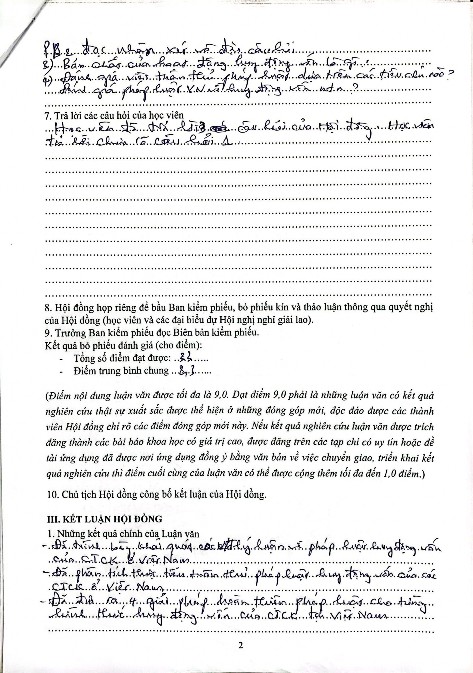 P.B.2 đọc nhận xét và đặt câu hỏi
3) Bản chất của hoạt động huy động vốn là gì?
4) Đánh giá việc thực thi pháp luật dựa trên các tiêu chí nào?
Đánh giá pháp luật VN về huy động vốn ntn?
7. Trả lời các câu hỏi của học viên
Học viên đã trả lời câu hỏi của Hội đồng. Học viên
trả lời chưa rõ câu hỏi 1
8. Hội đồng họp riêng để bầu Ban kiểm phiếu, bỏ phiếu kín và thảo luận thông qua quyết nghị
của Hội đồng (học viên và các đại biểu dự Hội nghị nghỉ giải lao).
9. Trưởng Ban kiểm phiếu đọc Biên bản kiểm phiếu.
Kết quả bỏ phiếu đánh giá (cho điểm):
- Tổng số điểm đạt được:
- Điểm trung bình chung
(Điểm nội dung luận văn được tối đa là 9,0. Đạt điểm 9,0 phải là những luận văn có kết quả
nghiên cứu thật sự xuất sắc được thể hiện ở những đóng góp mới, độc đáo được các thành
viên Hội đồng chỉ rõ các điểm đóng góp mới này. Nếu kết quả nghiên cứu luận văn được trích
đăng thành các bài báo khoa học có giá trị cao, được đăng trên các tạp chí có uy tín hoặc đề
tài ứng dụng đã được nơi ứng dụng đồng ý bằng văn bản về việc chuyển giao, triển khai kết
quả nghiên cứu thì điểm cuối cùng của luận văn có thể được cộng thêm tối đa đến 1,0 điểm.)
10. Chủ tịch Hội đồng công bố kết luận của Hội đồng.
III. KẾT LUẬN HỘI ĐỒNG
1. Những kết quả chính của Luận văn
- Đã trình bày khái quát lý luận về pháp luật huy động vốn
của CTCK ở Việt Nam
- Đã phân tích thực tiễn thực thi pháp luật huy động vốn của các
CTCK ở Việt Nam
- Đã đưa ra 4 giải pháp hoàn thiện pháp luật cho từng
hình thức huy động vốn của CTCK tại Việt Nam
2